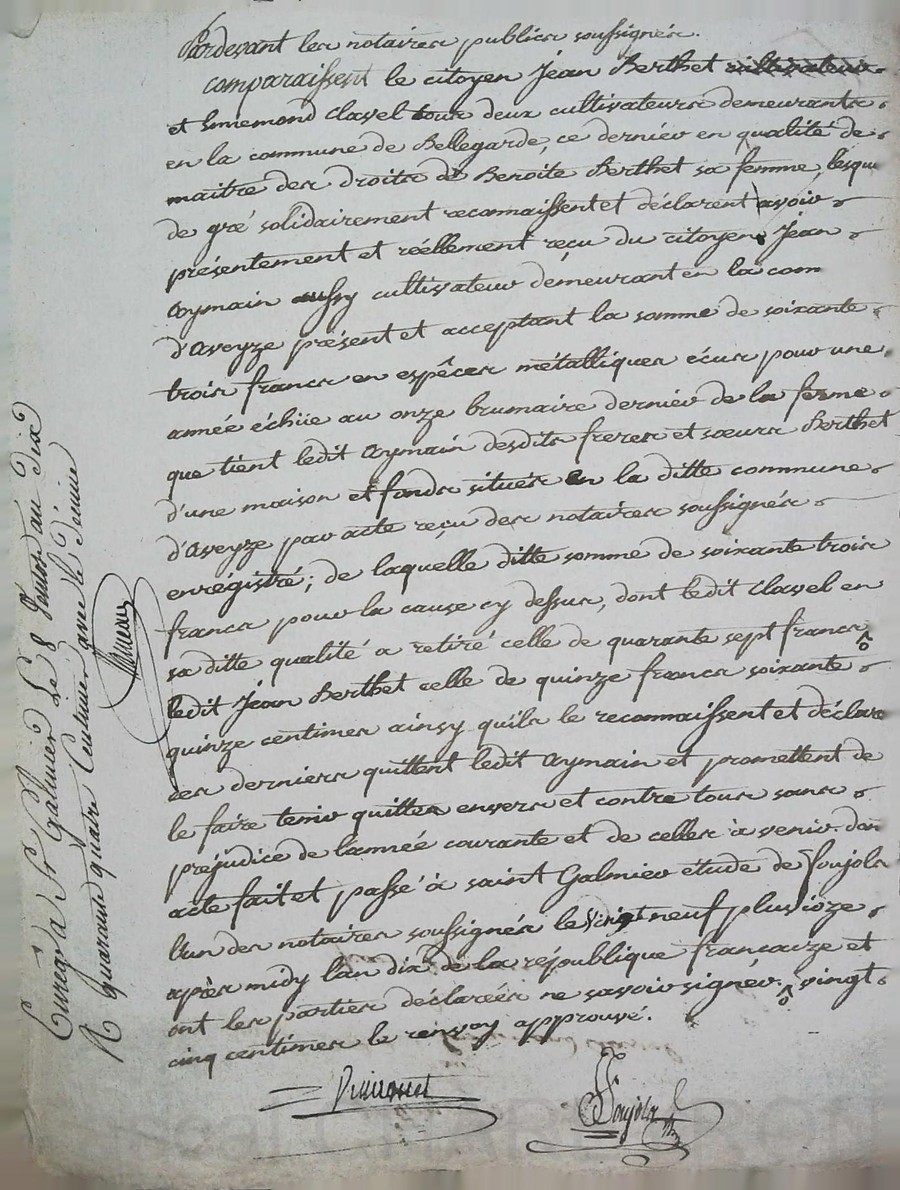 Pardevant les notaires publics soussignés.
comparaissent le citoyen Jean Berthet cultivateur
et Ennemond Clavel tous deux cultivateurs demeurants
en la commune de Bellegarde, ce dernier en qualité de
maitre des droits de Benoite Berthet sa femme, lesque
de gré solidairement reconnaissent et déclarent avoir
présentement et réellement reçu du citoyen Jean
Aymain aussy cultivateur demeurant en la com
d'aveyze présent et acceptant la somme de soixante
trois francs en espêces métalliques écus pour une
année échüe au onze brumaire dernier de la ferme
que tient ledit Aymain desdits freres et soeurs Berthet
d'une maison et fonds situés en la ditte commune
d'aveyze par acte reçu des notaires soussignés
enrégistré; de laquelle ditte somme de soixante trois
francs pour la cause cy dessus, dont ledit Clavel en
sa ditte qualité a retiré celle de quarante sept francs
ledit Jean Berthet celle de quinze francs soixante
quinze centimes ainsy qu'ils le reconnaissent et déclare
ces derniers quittent ledit Aymain et promettent de
le faire tenir quittes envers et contre tous sans
préjudice de l'année courante et de celles à venir. don
acte fait et passé à saint Galmier étude de Foujols
l'un des notaires soussignés le vingt neuf pluvioze
après midy l'an dix de la république francaize et
ont les parties déclarées ne savoir signer. vingt
cinq centimes le renvoy approuvé.
Foujols
Enreg. à St Galmier le 8 Ventose an dix
R quarante quatre Centimes avec le décime